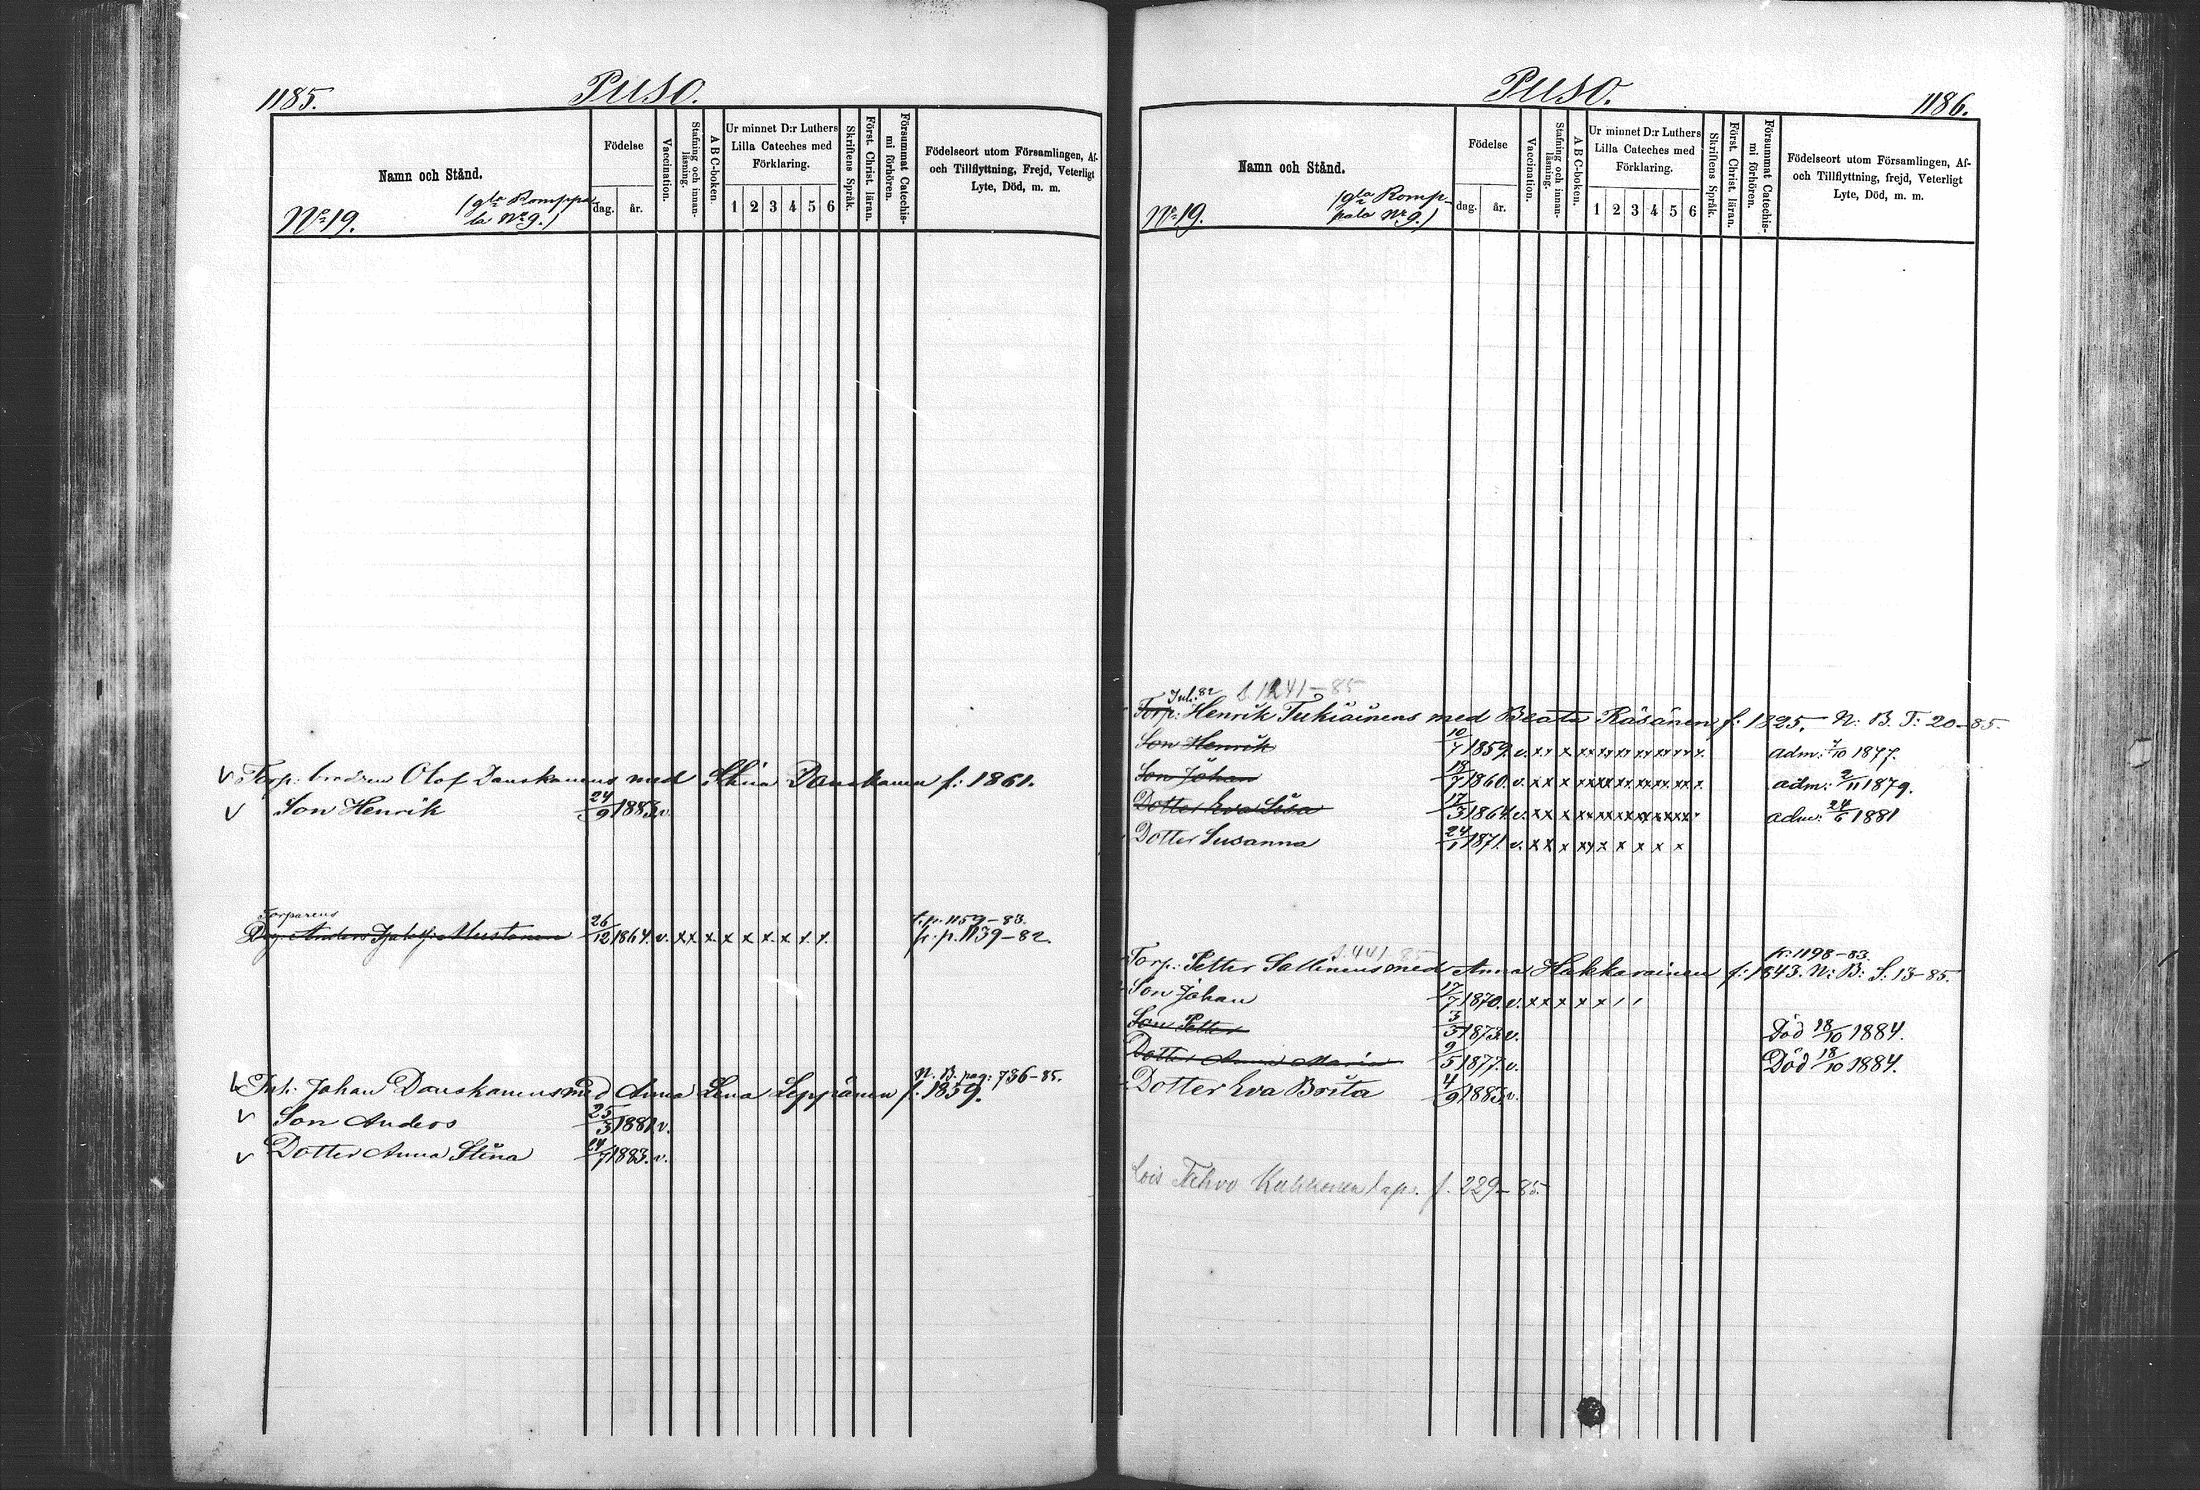 1185. Puso.
Namn och Stånd.
Födelse
dag. år.
Vaccination.
Stafning och innan-läsning.
A B C-boken.
Ur minnet D:r Luthers
Lilla Cateches med
Förklaring.
1 2 3 4 5 6
Skriftens Språk.
Först. Christ. läran.
Försummat Catechis-
mi förhören.
Födelseort utom Församlingen, Af-
och Tillflyttning, Frejd, Veterligt
Lyte, Död, m. m.
No 19. (gla Romppa
la No 9.)
v Torp: brodren Olof Danskanens med Stina Danskanen f: 1861.
v Son Henrik 24/9 1883. v.
Torparens f. p. 1159-83.
Drg. Anders Mustonen 26/12 1864. v. xx x x x x x x x fr. p. 1139-82.
N. B. pag: 736-85.
v Inh: Johan Danskanens med Anna Lena Leppänen f. 1859.
v Son Anders 25/3 1881. v.
v Dotter Anna Stina 14/7 1883. v.
Puso. 1186.
Namn och Stånd.
Födelse
dag. år.
Vaccination.
Stafning och innan-läsning.
A B C-boken.
Ur minnet D:r Luthers
Lilla Cateches med
Förklaring.
1 2 3 4 5 6
Skriftens Språk.
Först. Christ. läran.
Försummat Catechis-
mi förhören.
Födelseort utom Församlingen, Af-
och Tillflyttning, frejd, Veterligt
Lyte, Död, m. m.
No 19. (gla Romp-
pala No 9.)
Inh. 82 S. 1241-85
Torp: Henrik Tukiainens med Beata Räsänen f: 1825. N: B. T: 20-85.
Son Henrik 10/7 1859. v. xx x xx xx xx xx xx xx x adm: 7/10 1877.
Son Johan 18/7 1860. v. xx x xx xx xx xx xx xx x adm: 2/11 1879.
Dotter Eva Lisa 17/3 1864. v. xx x xx xx xx xx xx xx adm: 24/6 1881
Dotter Susanna 24/1 1871. v. xx x xx x x x x x
S. 441-85 fr: 1198-83.
Torp: Petter Sallinens med Anna Hakkarainen f: 1843. N: B: S: 13-85.
Son Johan 17/7 1870. v. xx x x x x / /
Son Petter 3/5 1873. v. Död 18/10 1884.
Dotter Anna Maria 9/5 1877. v. Död 18/10 1884.
Dotter Eva Brita 4/9 1883. v.
Lois Tahvo Kukkonen f. 229-85.